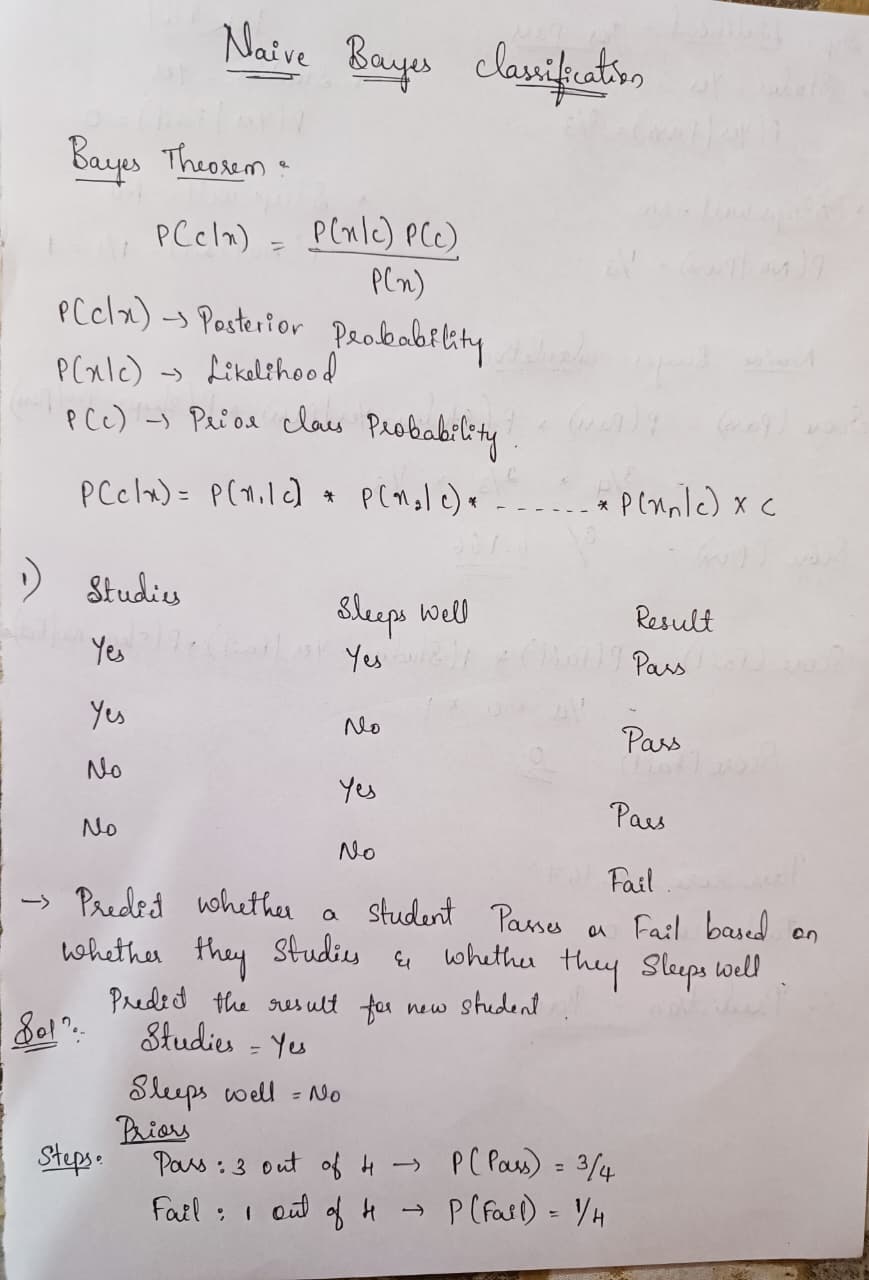 Naive Bayes Classification
Bayes Theorem :
P(c|x) = P(x|c) P(c)
P(x)
P(c|x) → Posterior Probability
P(x|c) → Likelihood
P(c) → Prior class Probability.
P(c|x) = P(x1|c) * P(x2|c) * ------ * P(xn|c) x c
1) Studies Sleeps well Result
Yes Yes Pass
Yes No Pass
No Yes Pass
No No Fail.
→ Predict whether a student Passes or Fail based on
whether they Studies & whether they Sleeps well.
Predict the result for new student.
Soln:- Studies = Yes
Sleeps well = No
Priors
Steps: Pass : 3 out of 4 → P(Pass) = 3/4
Fail : 1 out of 4 → P(Fail) = 1/4